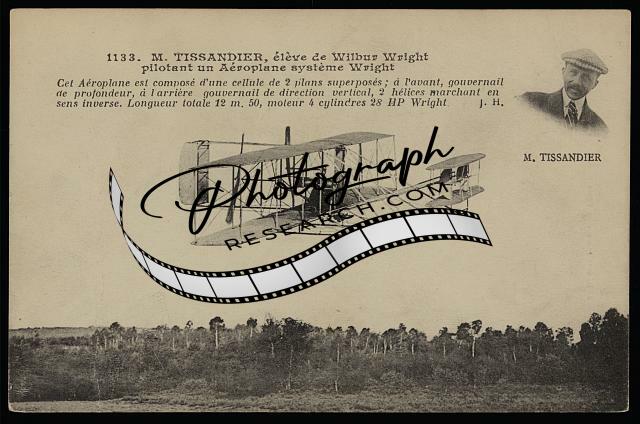 1133. M. TISSANDIER, élève de Wilbur Wright
pilotant un Aéroplane système Wright
Cet Aéroplane est composé d'une cellule de 2 plans superposés ; à l'avant, gouvernail
de profondeur, à l'arrière gouvernail de direction vertical, 2 hélices marchant en
sens inverse. Longueur totale 12 m. 50, moteur 4 cylindres 28 HP Wright. J. H.
M. TISSANDIER
Photograph
RESEARCH.COM